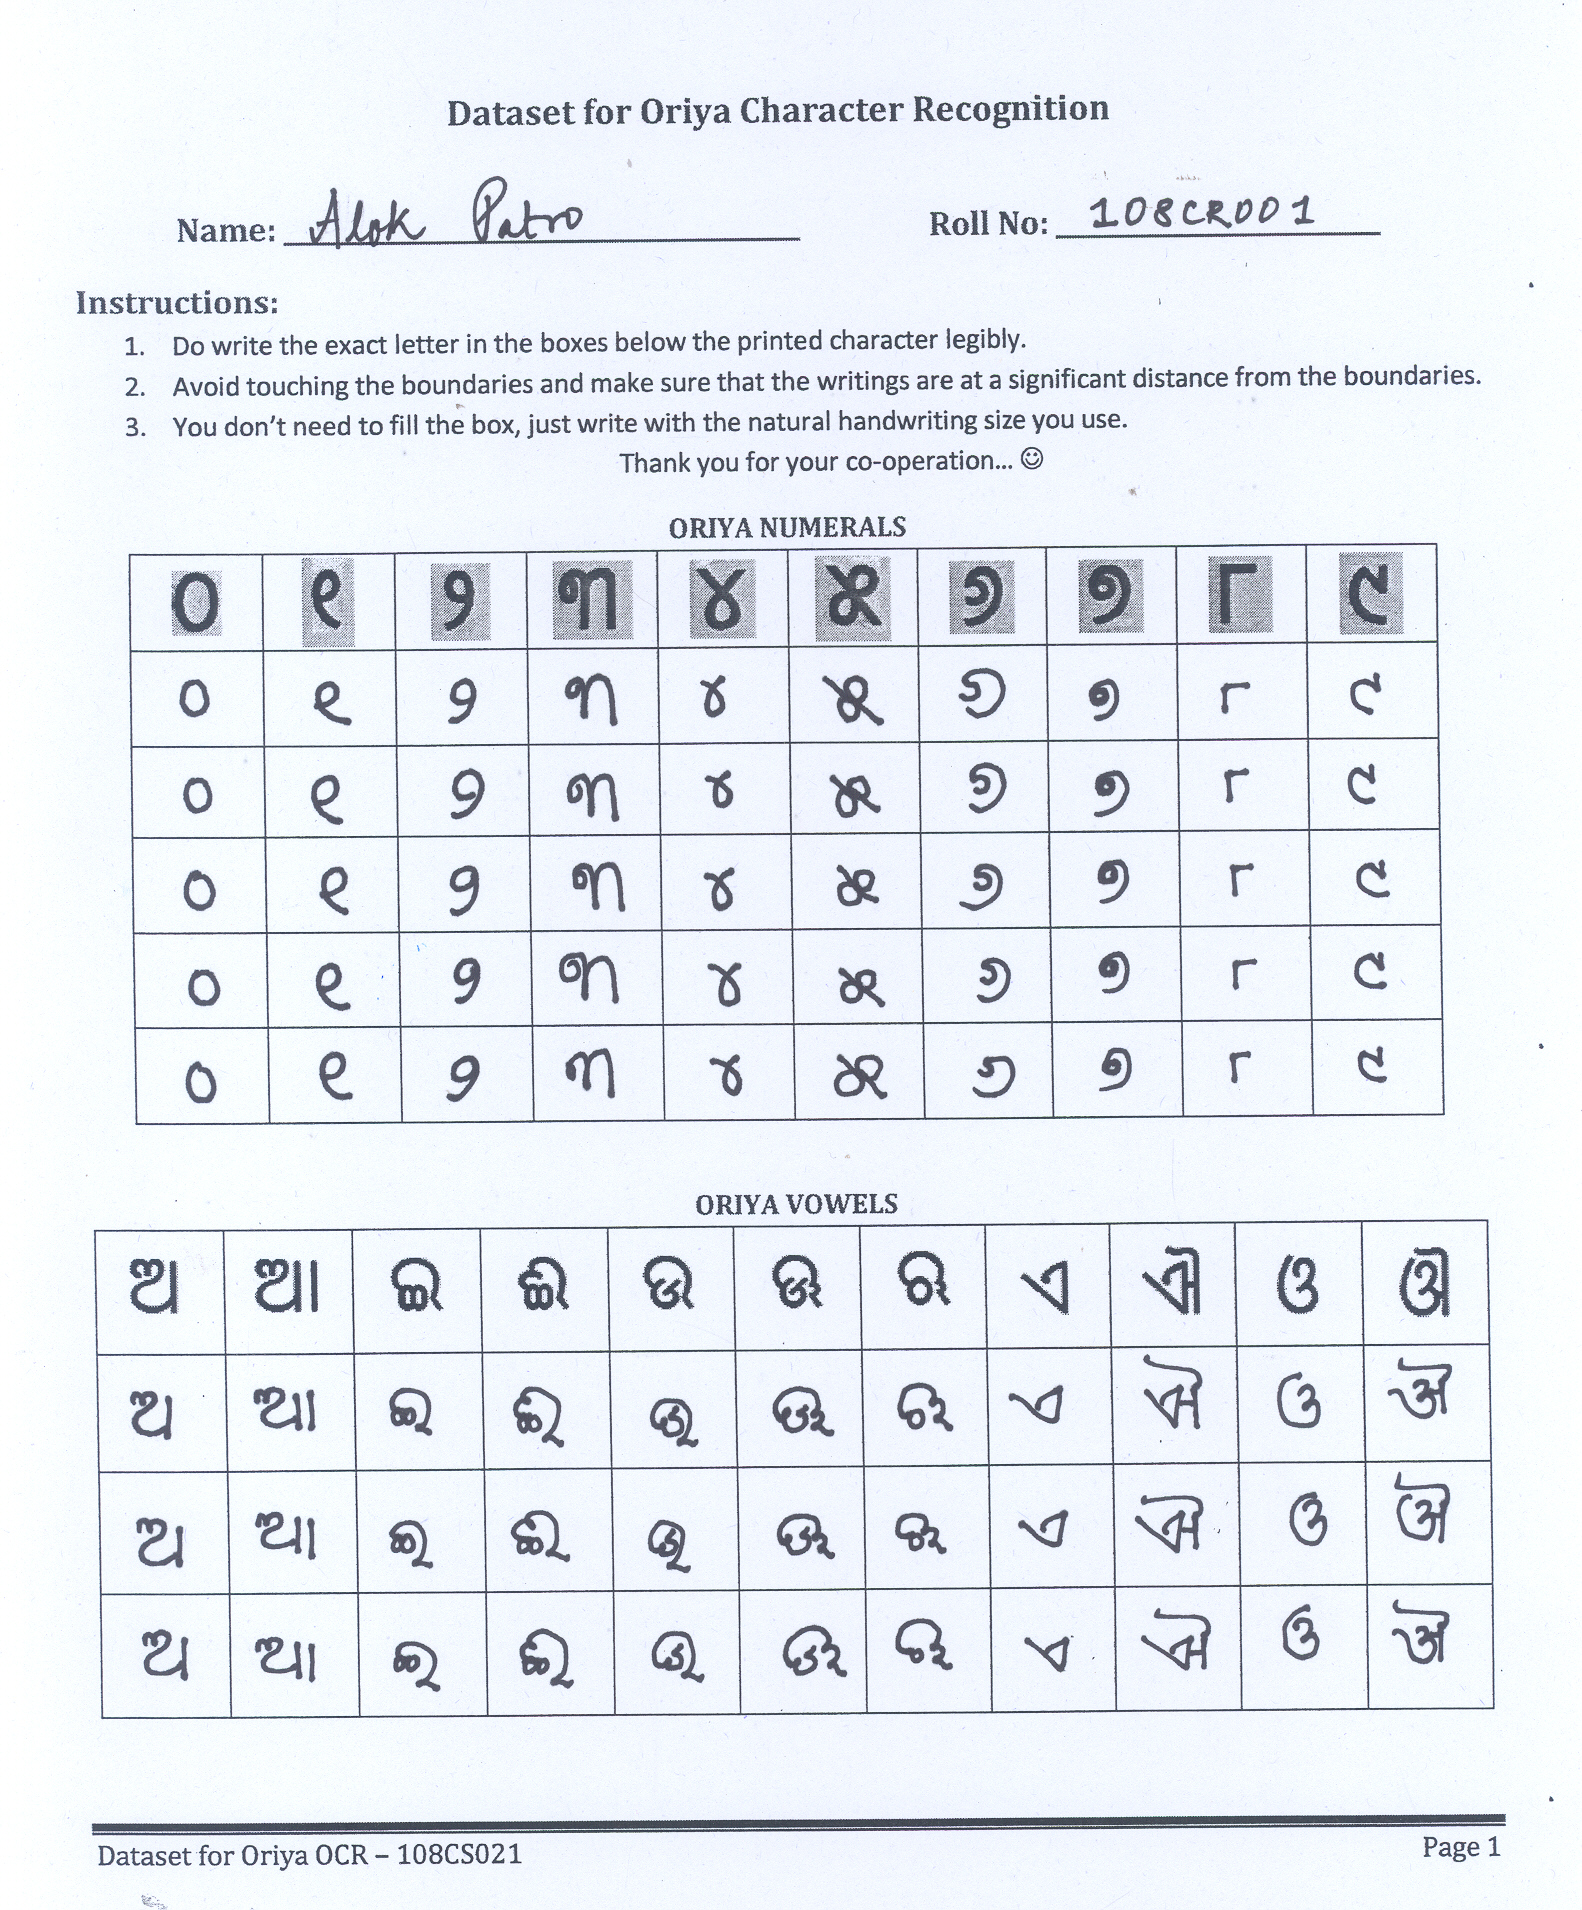 Dataset for Oriya Character Recognition
Name: Alok Patro Roll No: 108CR001
Instructions:
1. Do write the exact letter in the boxes below the printed character legibly.
2. Avoid touching the boundaries and make sure that the writings are at a significant distance from the boundaries.
3. You don't need to fill the box, just write with the natural handwriting size you use.
Thank you for your co-operation... ☺
ORIYA NUMERALS
୦ ୧ ୨ ୩ ୪ ୫ ୬ ୭ ୮ ୯
୦ ୧ ୨ ୩ ୪ ୫ ୬ ୭ ୮ ୯
୦ ୧ ୨ ୩ ୪ ୫ ୬ ୭ ୮ ୯
୦ ୧ ୨ ୩ ୪ ୫ ୬ ୭ ୮ ୯
୦ ୧ ୨ ୩ ୪ ୫ ୬ ୭ ୮ ୯
୦ ୧ ୨ ୩ ୪ ୫ ୬ ୭ ୮ ୯
ORIYA VOWELS
ଅ ଆ ଇ ଈ ଉ ଊ ଋ ଏ ଐ ଓ ଔ
ଅ ଆ ଇ ଈ ଉ ଊ ଋ ଏ ଐ ଓ ଔ
ଅ ଆ ଇ ଈ ଉ ଊ ଋ ଏ ଐ ଓ ଔ
ଅ ଆ ଇ ଈ ଉ ଊ ଋ ଏ ଐ ଓ ଔ
Dataset for Oriya OCR – 108CS021 Page 1